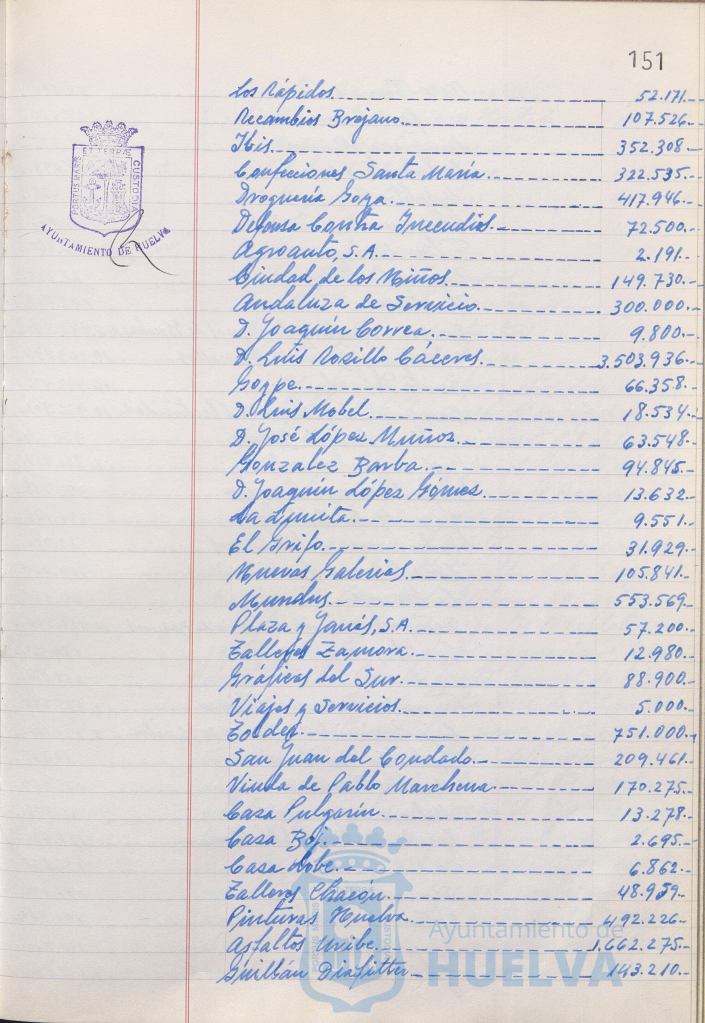 151
Los Rápidos 52.171.-
Recambios Brojano 107.526.-
Ibis 352.308.-
Confecciones Santa María 322.535.-
Droguería Goya 417.946.-
Defensa Contra Incendios 72.500.-
Agroauto, S.A. 2.191.-
Ciudad de los Niños 149.730.-
Andaluza de Servicio 300.000.-
D. Joaquín Correa 9.800.-
D. Luis Rozillo Cáceres 3.503.936.-
Goype 66.358.-
D. Luis Mobel 18.534.-
D. José López Muñoz 63.548.-
Gonzalez Barba 94.845.-
D. Joaquín López Gómez 13.632.-
La 9.551.-
El Grifo 31.929.-
Nuevas Galerias 105.841.-
Mundus 553.569.-
Plaza y Janés, S.A. 57.200.-
Talleres Zamora 12.980.-
Gráficas del Sur 88.900.-
Viajes y Servicios 5.000.-
751.000.-
San Juan del Condado 209.461.-
Viuda de Pablo Marchena 170.275.-
Casa Pulgarín 13.278.-
Casa Boj 2.695.-
Casa Lobe 6.862.-
Talleres Chacón 48.959.-
Pinturas Huelva 492.226.-
Asfaltos Uribe 1.662.275.-
143.210.-
PORTUS MARIS ET TERRAE CUSTODIA
AYUNTAMIENTO DE HUELVA
Ayuntamiento de
HUELVA